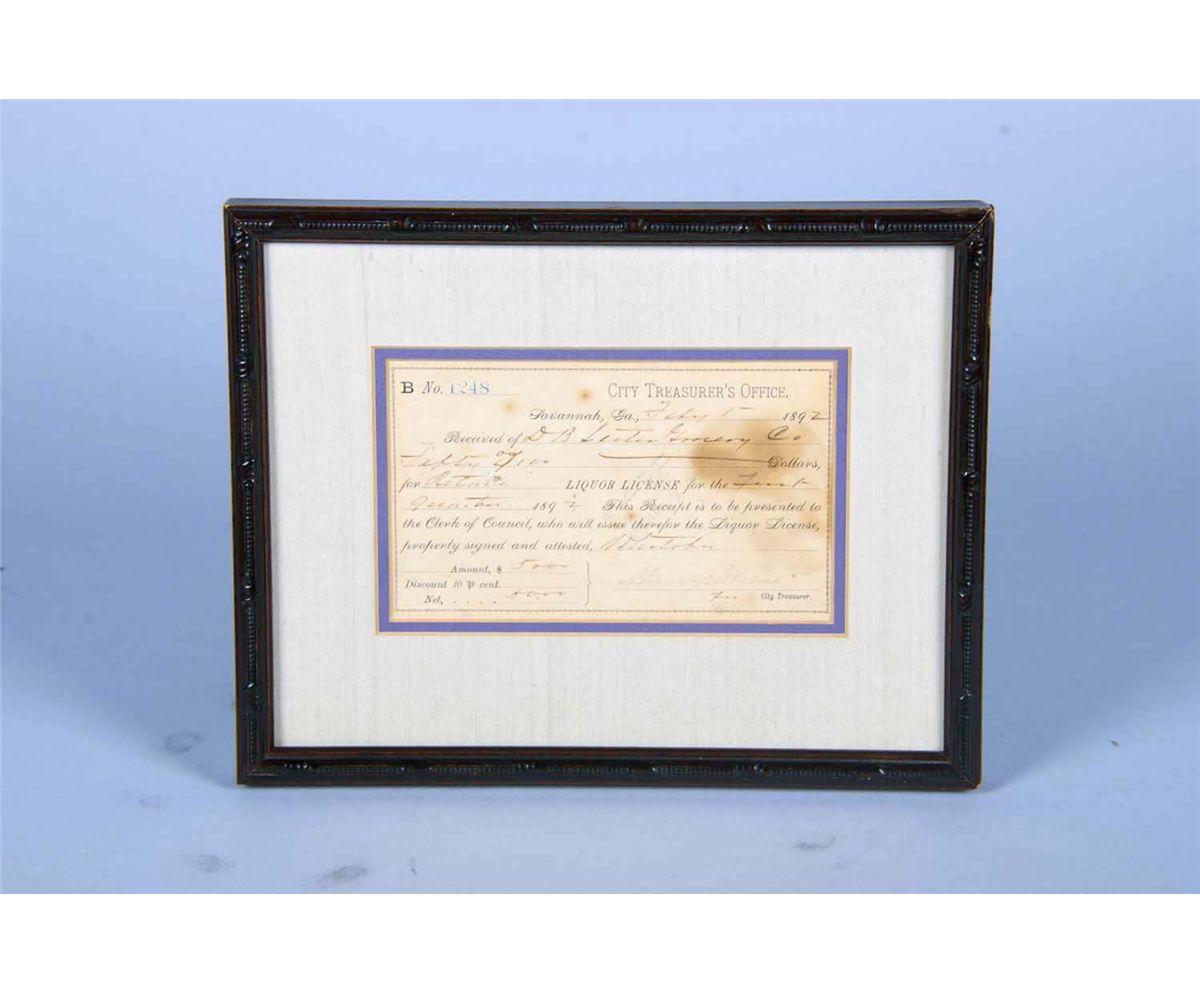 B No. 1248 CITY TREASURER'S OFFICE,
Savannah, Ga., Feby 1892
Received of D B Grocery Co
Fifty 00/100 Dollars,
for LIQUOR LICENSE for the First
Quarter 1892 This Receipt is to be presented to
the Clerk of Council, who will issue therefor the Liquor License,
properly signed and attested,
Amount, $ 5000
Discount 10 ⅌ cent.
Net, . . . . 5000
City Treasurer.